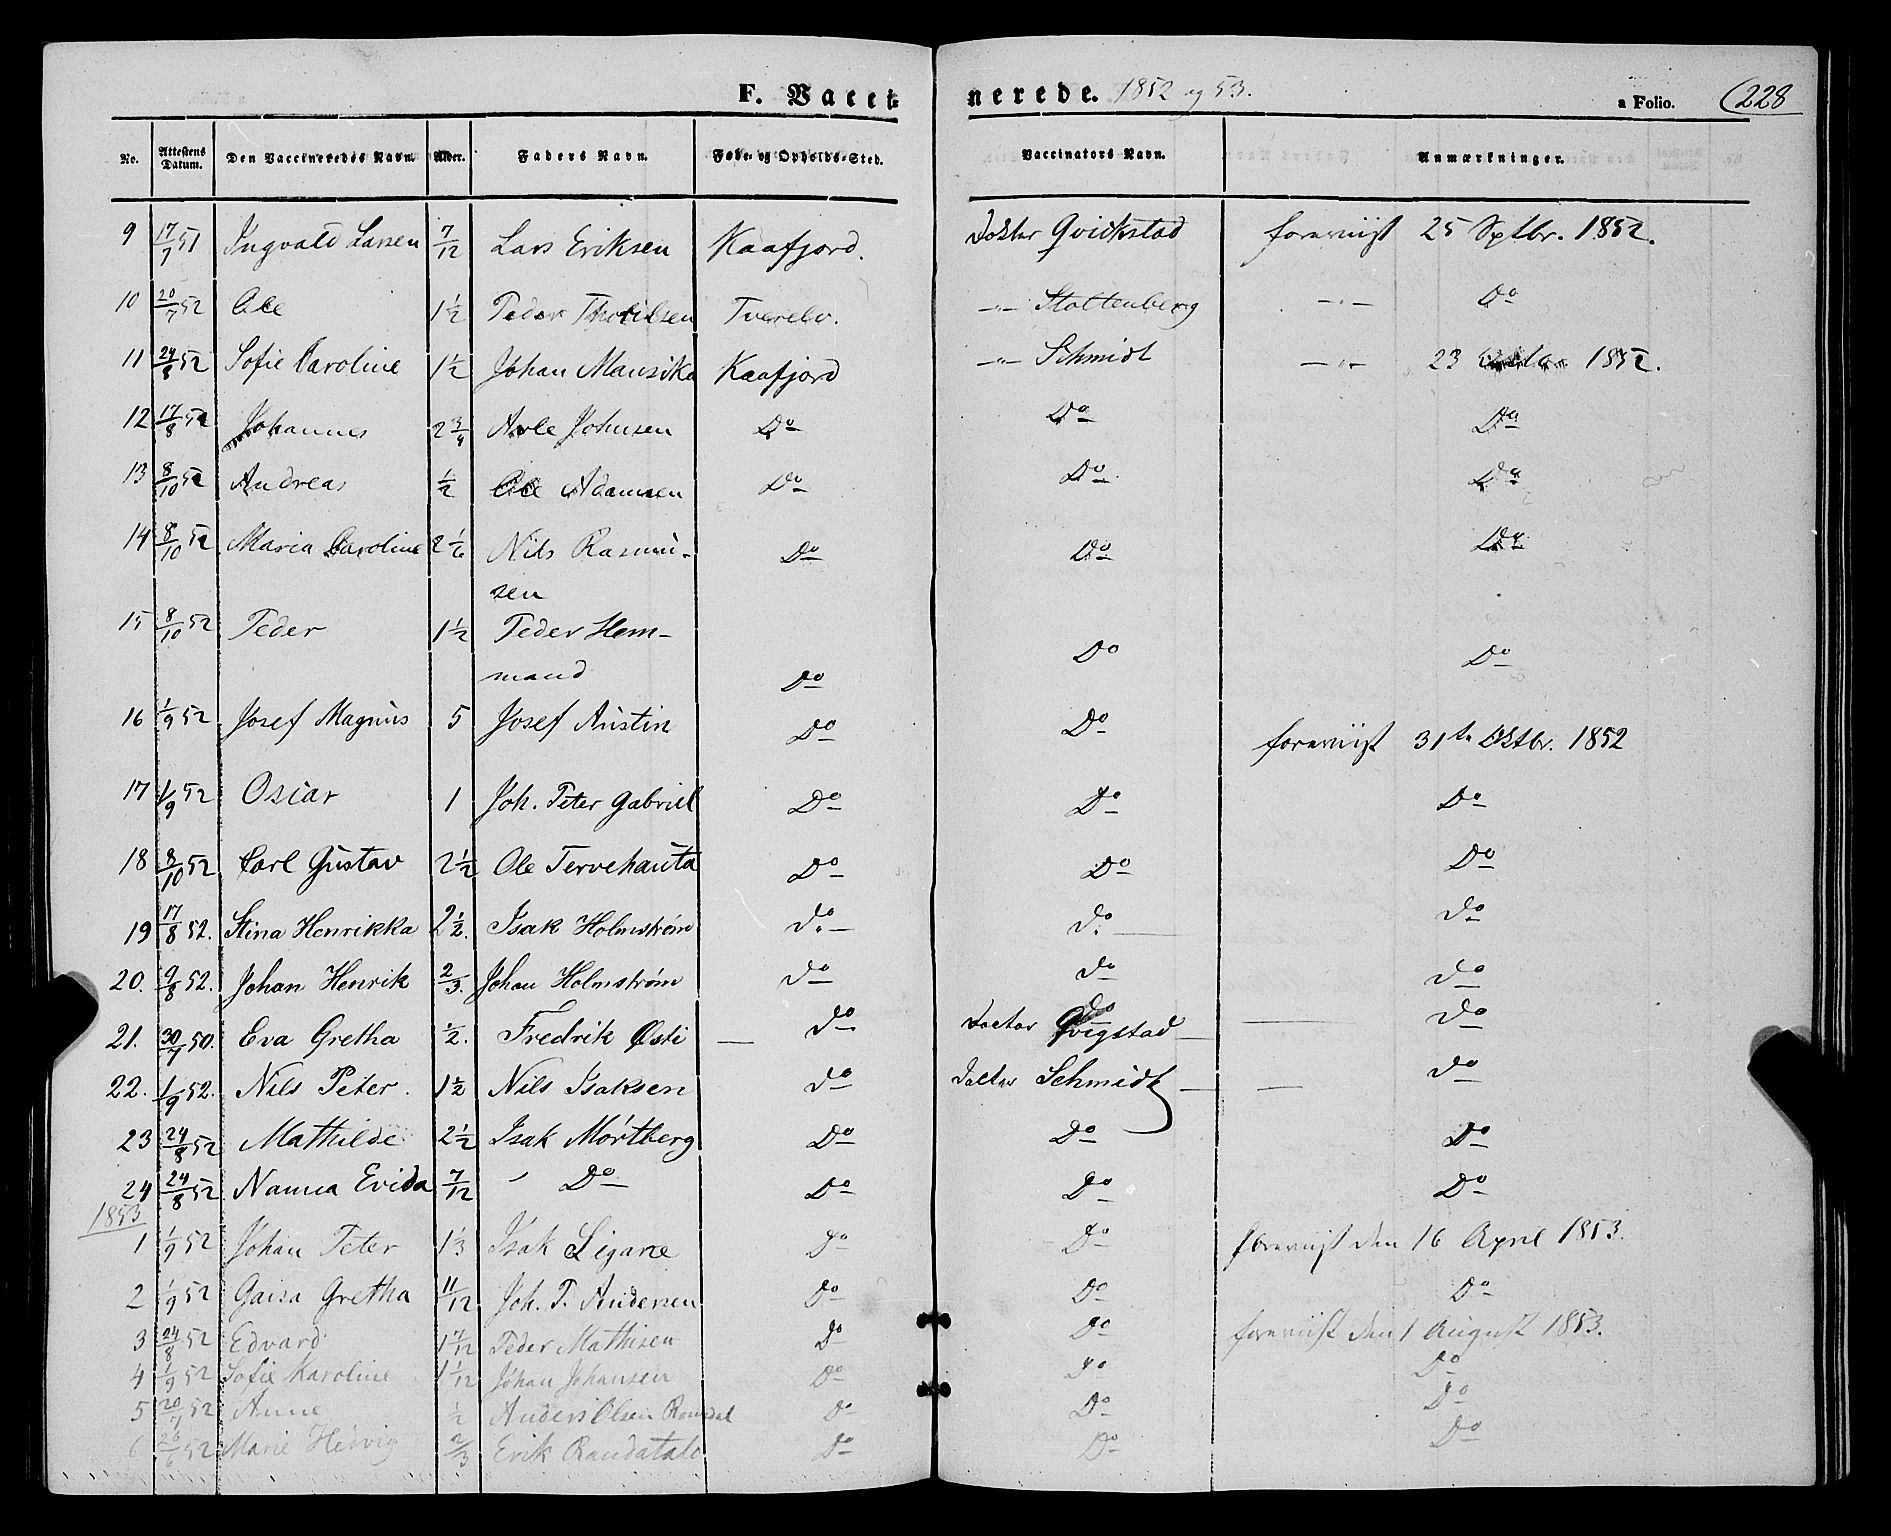 F. Vacci-nerede. 1852 og 53. a Folio. 228
No. Attestens Datum. Den Vaccineredes Navn. Alder. Faders Navn. Føde- og Opholds-Sted. Vaccinators Navn. Anmærkninger.
9 17/7 51 Ingvald Larsen 7/12 Lars Eriksen Kaafjord. Doktor Qvickstad foreviist 25 Sptbr. 1852.
10 20/7 52 Ole 1 1/2 Peder Thorilsen Tverelv. -"- Stoltenberg -"- Do
11 24/8 52 Sofie Caroline 1 1/2 Johan Mansika Kaafjord -"- Schmidt -"- 23 1852.
12 17/8 52 Johannes 2 3/4 Arle Johnsen Do Do Do
13 8/10 52 Andreas 1/2 Ole Adamsen Do Do Do
14 8/10 52 Maria Caroline 2 1/6 Nils Rasmu-
sen Do Do Do
15 8/10 52 Peder 1 1/2 Peder Hem-
mand Do Do Do
16 1/9 52 Josef Magnus 5 Josef Austin Do Do foreviist 31te Oktbr. 1852
17 1/9 52 Oscar 1 Joh. Peter Gabriel Do Do Do
18 8/10 52 Carl Gustav 2 1/2 Ole Tervehauta Do Do Do
19 17/8 52. Stina Henrikka 2 1/2. Isak Holmstrøm do. do. do
20. 9/8 52. Johan Henrik 2/3. Johan Holmstrøm do do do
21. 30/7 50. Eva Gretha 1/2. Fredrik Østi do Doctor Qvigstad do
22. 1/9 52. Nils Peter. 1 1/2 Nils Isaksen do Doctor Schmidt do
23 24/8 52 Mathilde 2 1/2 Isak Mørtberg Do Do Do
24 24/8 52 Nanna Evida 7/12 Do Do Do Do
1853
1 1/9 52 Johan Peter 1 1/3 Isak Ligane Do Do foreviist den 16 April 1853.
2 1/9 52 Gaisa Gretha 11/12 Joh. P. Andersen Do Do Do
3 24/8 52 Edvard 1 7/12 Peder Mathisen Do Do foreviist den 1 August 1853.
4 1/9 52 Sofie Karoline 1 1/12 Johan Johansen Do Do Do
5 20/7 52 Anne 1/2 Anders Olsen Romsdal Do Do Do
6 26/6 52 Marie Hedvig 2/3 Erik Raudatalo Do Do Do